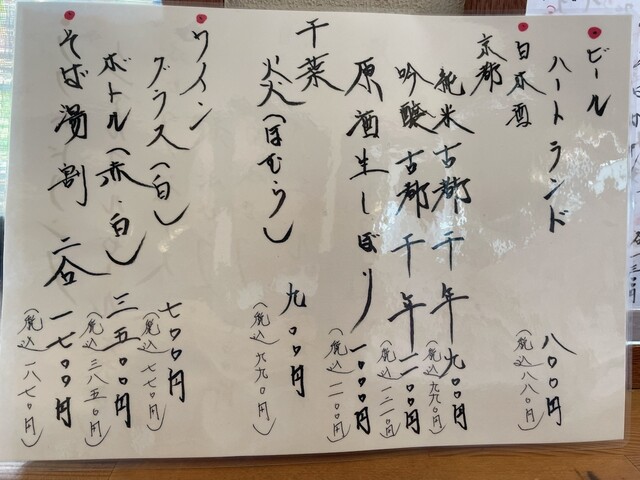 ビール
ハートランド 八〇〇円
(税込 八八〇円)
日本酒
京都
純米 古都千年 九〇〇円
(税込 九九〇円)
吟醸 古都千年 一一〇〇円
(税込 一二一〇円)
原酒生しぼり 一〇〇〇円
(税込 一一〇〇円)
千葉
焱(ほむら) 九〇〇円
(税込 九九〇円)
ワイン
グラス(白) 七〇〇円
(税込 七七〇円)
ボトル(赤・白) 三五〇〇円
(税込 三八五〇円)
そば湯割 二合 一七〇〇円
(税込 一八七〇円)